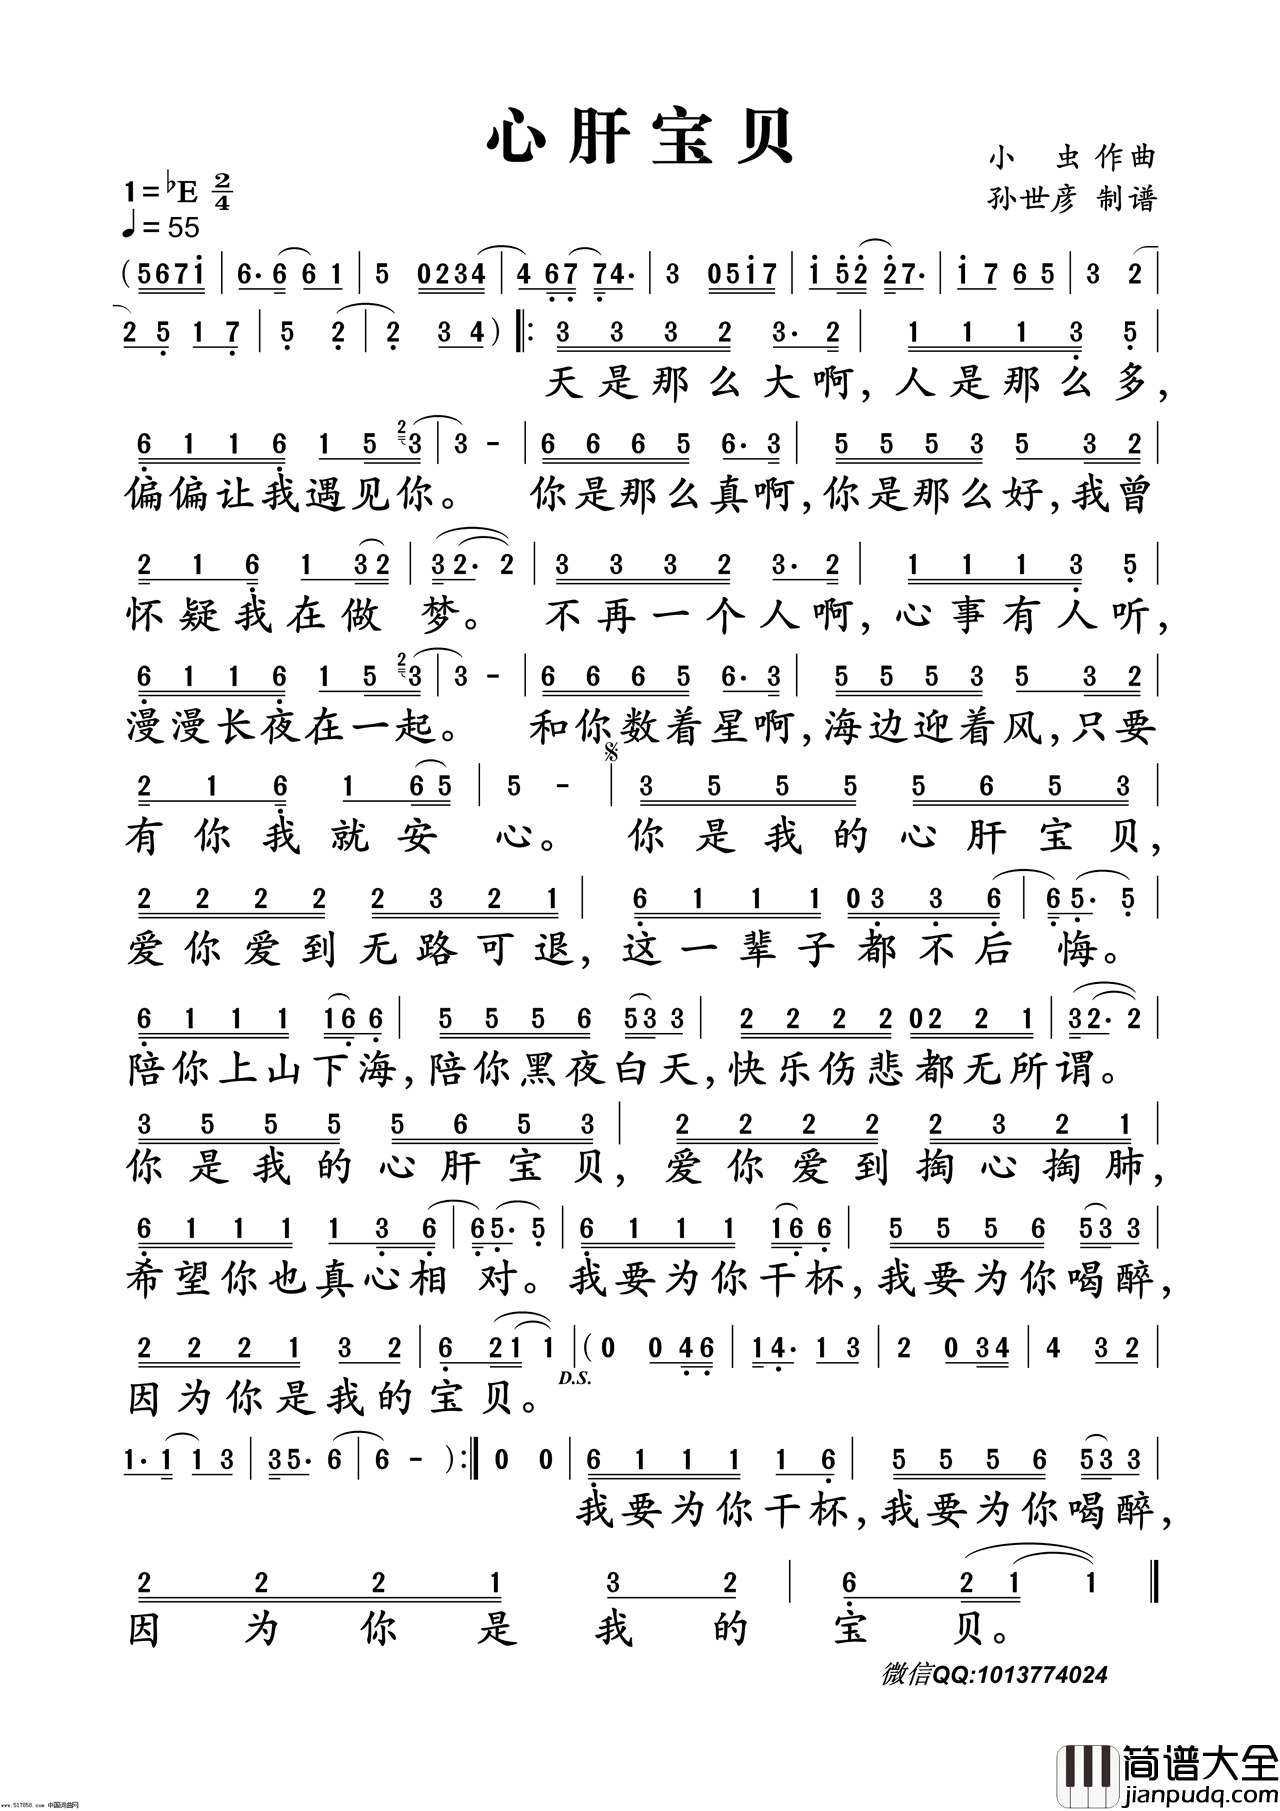 心肝宝贝
小 虫 作曲
1=♭E 2/4
孙世彦 制谱
♩=55
(567i | 6· 6 6 1 | 5 0234 | 4 67 74· | 3 05i7 | i 52 27· | i 7 6 5 | 3 2
2 5 1 7 | 5 2 | 2 3 4 ) ‖: 3 3 3 2 3· 2 | 1 1 1 3 5 |
天是那么大啊,人是那么多,
6 1 1 6 1 5 2 3 | 3 - | 6 6 6 5 6· 3 | 5 5 5 3 5 3 2 |
偏偏让我遇见你。 你是那么真啊,你是那么好,我曾
2 1 6 1 3 2 | 3 2· 2 | 3 3 3 2 3· 2 | 1 1 1 3 5 |
怀疑我在做 梦。 不再一个人啊,心事有人听,
6 1 1 6 1 5 2 3 | 3 - | 6 6 6 5 6· 3 | 5 5 5 3 5 3 2 |
漫漫长夜在一起。 和你数着星啊,海边迎着风,只要
2 1 6 1 6 5 | 5 - | 3 5 5 5 5 6 5 3 |
有你我就安 心。 你是我的心肝宝贝,
2 2 2 2 2 3 2 1 | 6 1 1 1 0 3 3 6 | 6 5· 5 |
爱你爱到无路可退,这一辈子都不后 悔。
6 1 1 1 1 6 6 | 5 5 5 6 5 3 3 | 2 2 2 2 0 2 2 1 | 3 2· 2 |
陪你上山下海,陪你黑夜白天,快乐伤悲都无所谓。
3 5 5 5 5 6 5 3 | 2 2 2 2 2 3 2 1 |
你是我的心肝宝贝,爱你爱到掏心掏肺,
6 1 1 1 1 3 6 | 6 5· 5 | 6 1 1 1 1 6 6 | 5 5 5 6 5 3 3 |
希望你也真心相 对。我要为你干杯,我要为你喝醉,
2 2 2 1 3 2 | 6 2 1 1 | ( 0 0 4 6 | 1 4· 1 3 | 2 0 3 4 | 4 3 2 |
D.S.
因为你是我的宝贝。
1· 1 1 3 | 3 5· 6 | 6 - ) :‖ 0 0 | 6 1 1 1 1 6 | 5 5 5 6 5 3 3 |
我要为你干杯,我要为你喝醉,
2 2 2 1 3 2 | 6 2 1 1 ‖
因为你是我的宝贝。
微信QQ:1013774024
简谱大全
www.517858.com 中国词曲网
jianpudq.com